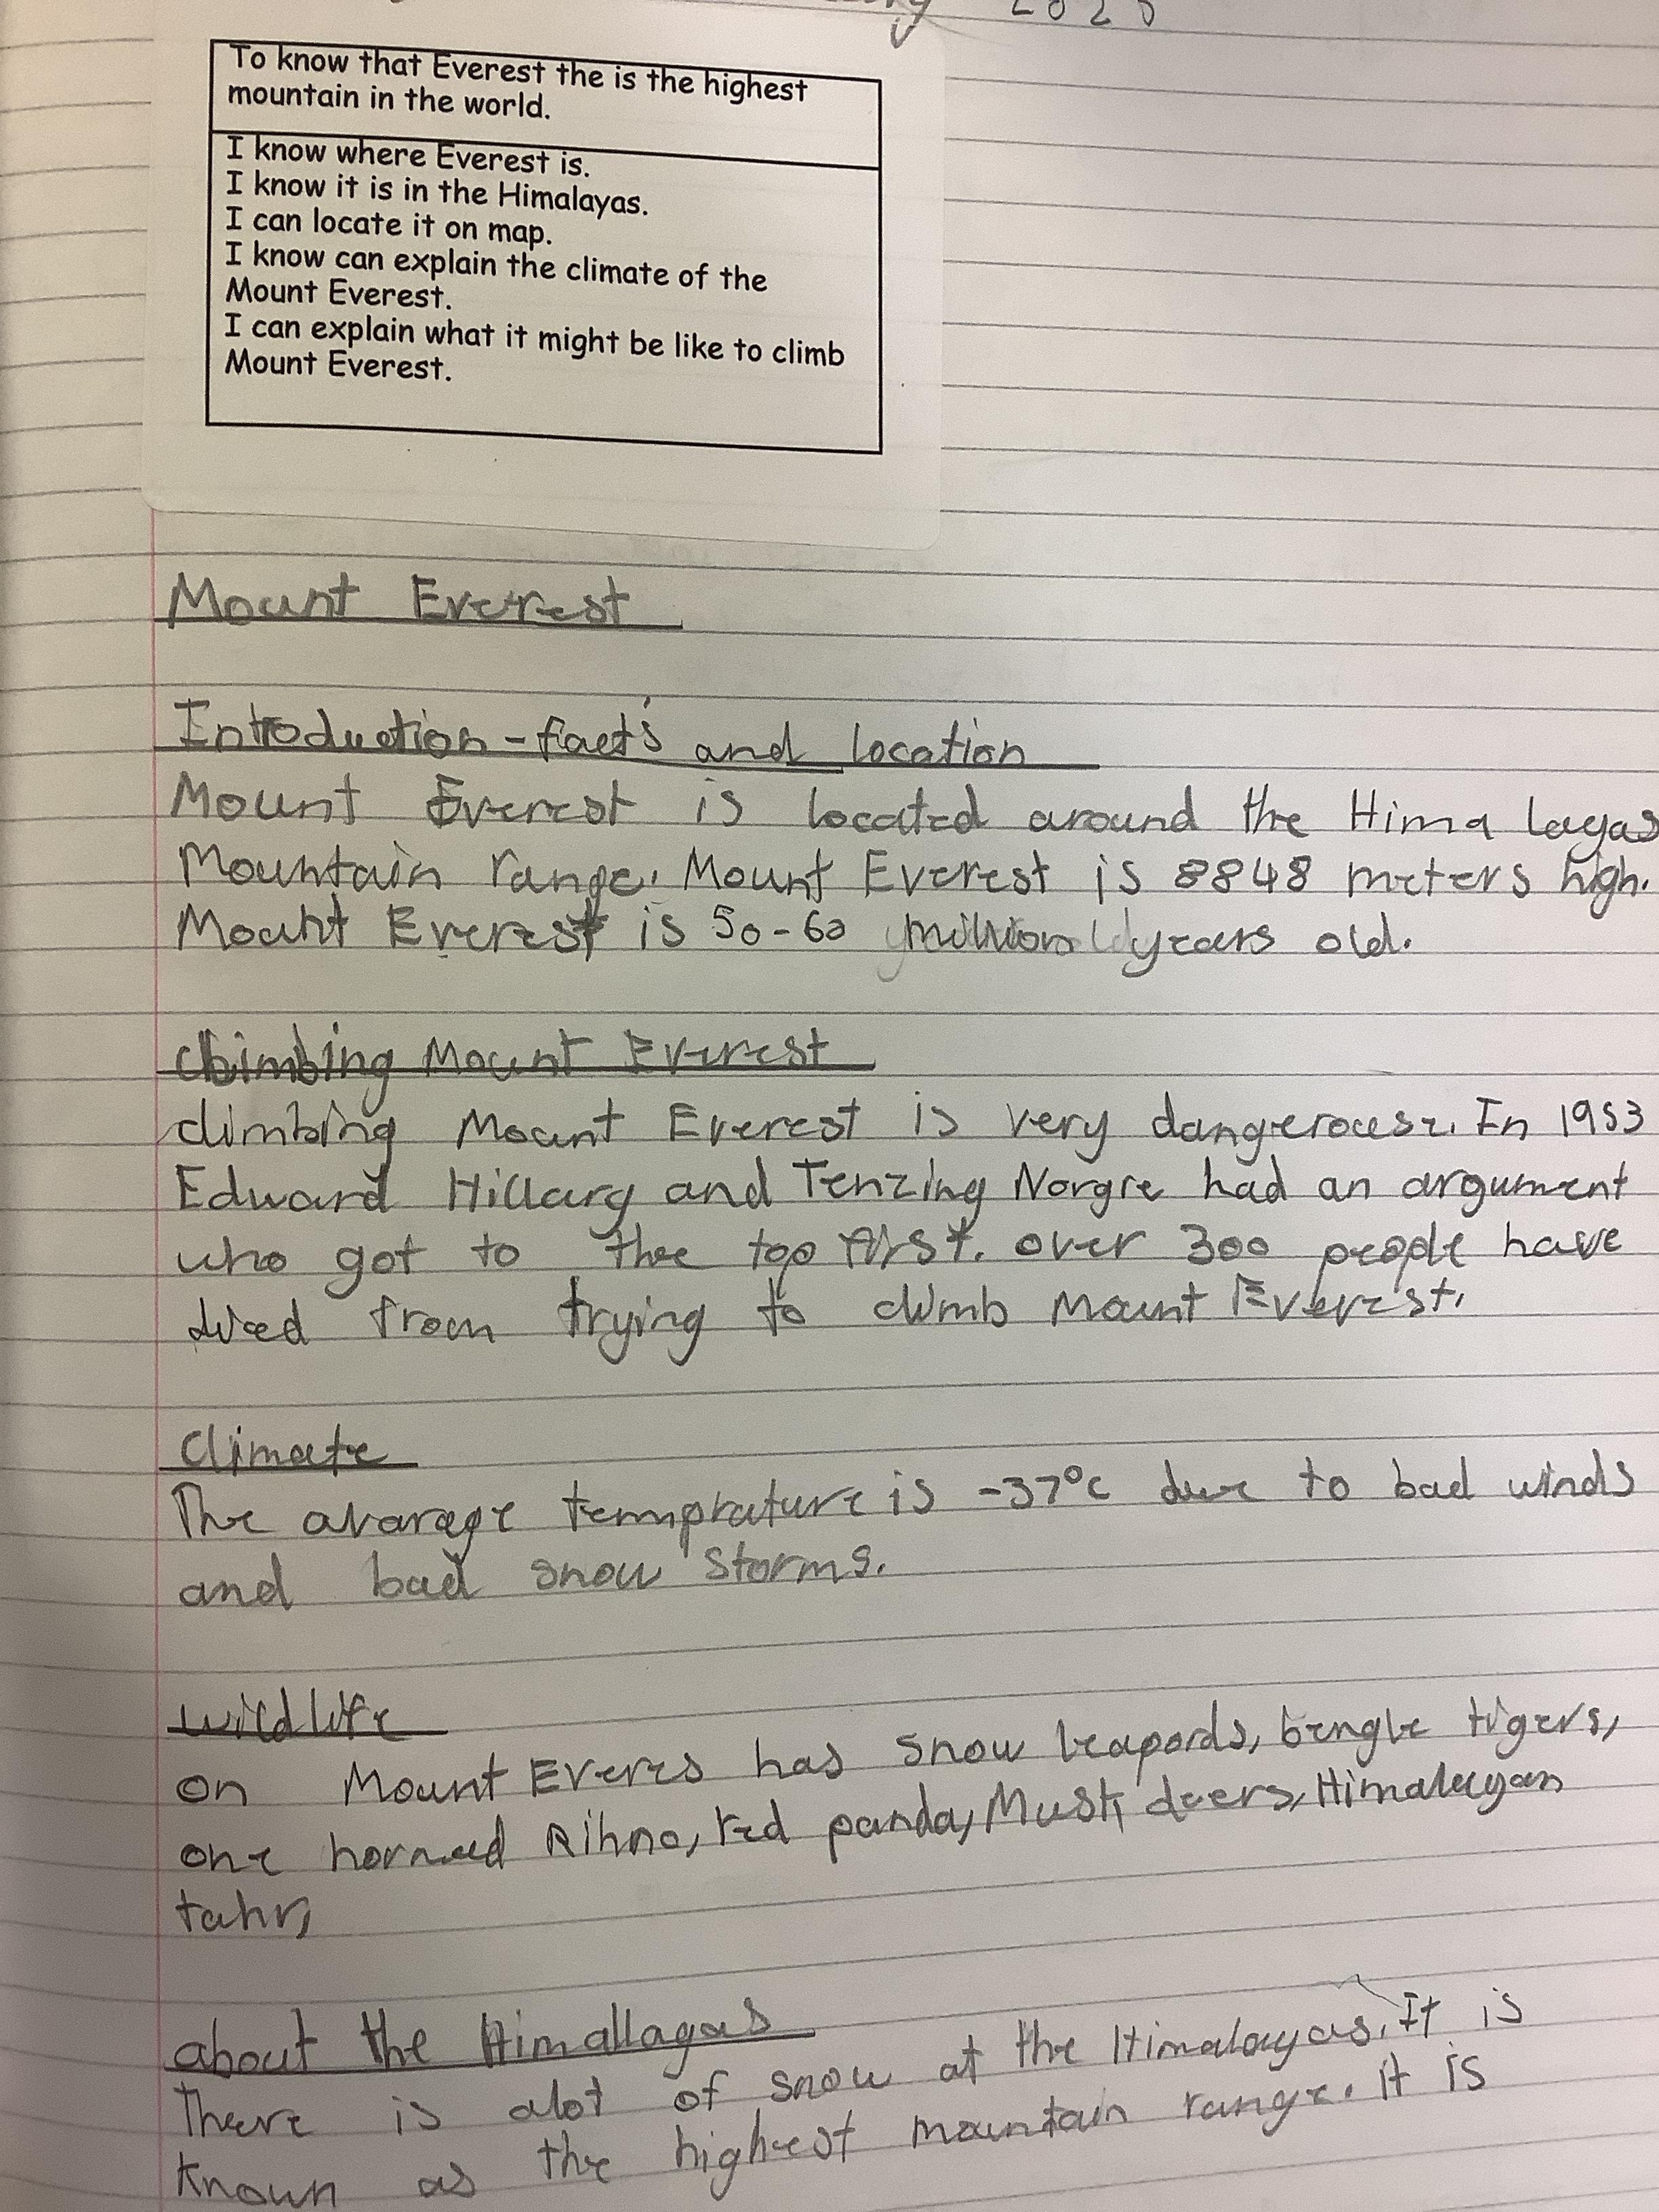 2025
To know that Everest the is the highest
mountain in the world.
I know where Everest is.
I know it is in the Himalayas.
I can locate it on map.
I know can explain the climate of the
Mount Everest.
I can explain what it might be like to climb
Mount Everest.
Mount Everest
Introduction - facts and location
Mount Everest is located around the Himalayas
Mountain range. Mount Everest is 8848 meters high.
Mount Everest is 50-60 million years old.
Climbing Mount Everest
climbing Mount Everest is very dangerouse. In 1953
Edward Hillary and Tenzing Norgre had an argument
who got to the top first. over 300 people have
died from trying to climb Mount Everest.
Climate
The avarage temprature is -37°c due to bad winds
and bad snow storms.
wildlife
on Mount Everes has snow leapords, bengle tigers,
one horned Rihno, red panda, Musk deers, Himalayan
tahr,
about the Himallayas
There is alot of snow at the Himalayas. It is
known as the highest mountain range. it is